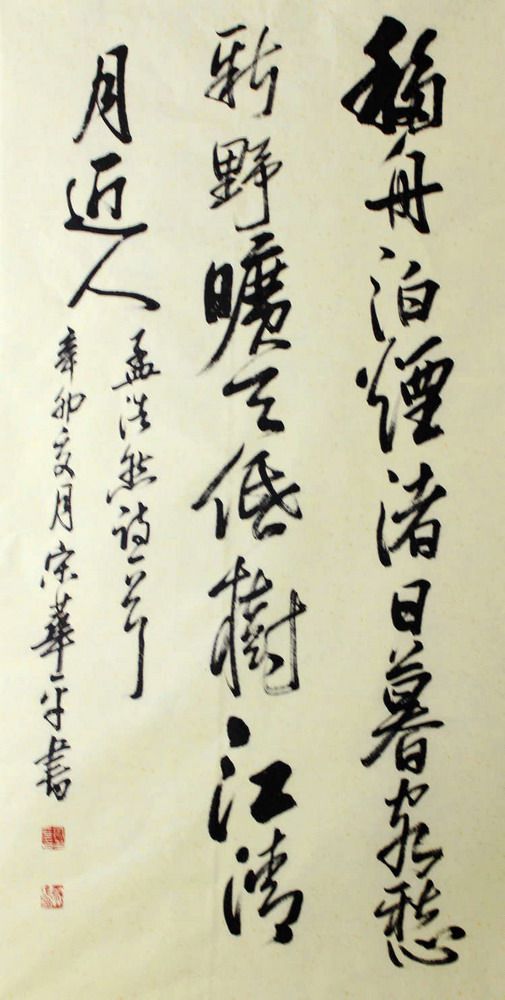 移舟泊煙渚日暮客愁
新野曠天低樹江清
月近人
孟浩然詩一首
辛卯亥月宋華平書